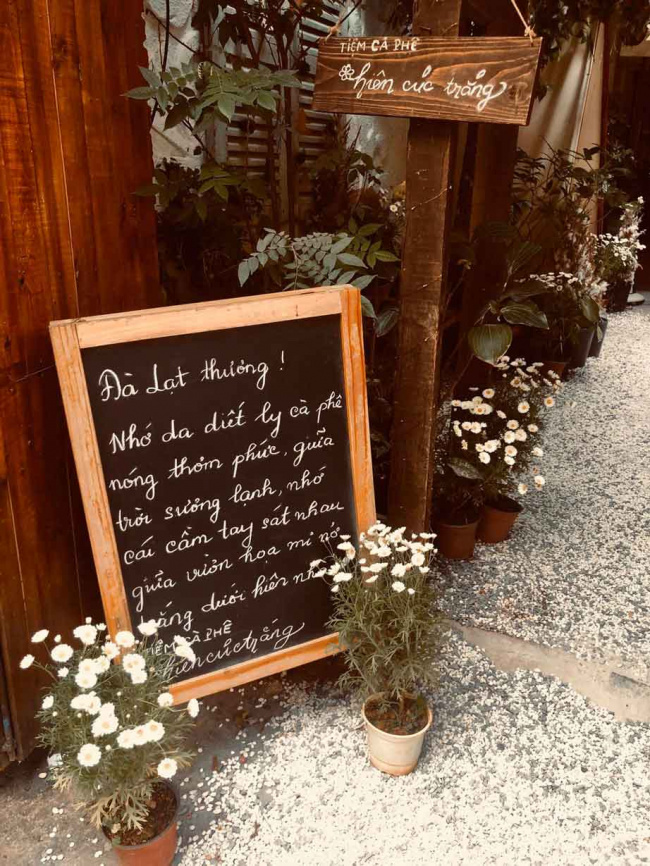 TIỆM CÀ PHÊ
hiên cúc trắng
Đà Lạt thương !
Nhớ da diết ly cà phê
nóng thơm phức, giữa
trời sương lạnh, nhớ
cái cầm tay sát nhau
giữa vườn họa mi nở
trắng dưới hiên
TIỆM CÀ PHÊ
hiên cúc trắng